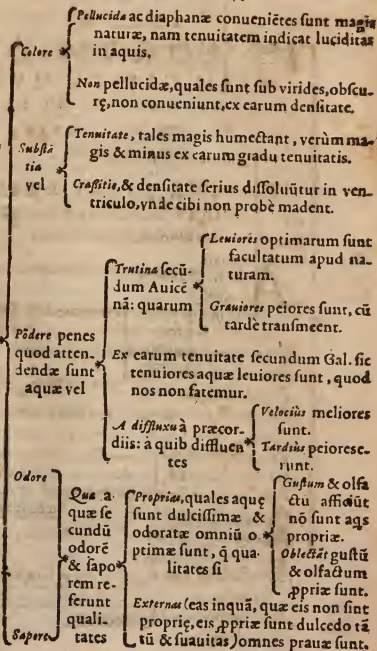 Colore
Pellucida ac diaphanæ conueniētes sunt magis
naturæ, nam tenuitatem indicat luciditas
in aquis.
Non pellucidæ, quales sunt sub virides, obscu-
rę, non conueniunt, ex earum densitate.
Substā
tia
vel
Tenuitate, tales magis humectant, verùm ma-
gis & minus ex earum gradu tenuitatis.
Crassitie, & densitate serius dissoluūtur in ven-
triculo, vnde cibi non probè madent.
Pōdere penes
quod atten-
dendæ sunt
aquæ vel
Trutina secū-
dum Auicē
nā: quarum
Leuiores optimarum sunt
facultatum apud na-
turam.
Grauiores peiores sunt, cū
tardè transmeent.
Ex earum tenuitate secundum Gal. sic
tenuiores aquæ leuiores sunt, quod
nos non fatemur.
A diffluxu à præcor-
diis: à quib diffluen
tes
Velociùs meliores
sunt.
Tardiùs peiorese-
runt.
Odore
Sapore
Qua a-
quæ se
cundū
odorē
& sapo
rem re-
ferunt
quali-
tates
Propriæ, quales aquę
sunt dulcissimæ &
odoratæ omniū o
ptimæ sunt, q̄ qua-
litates si
Gustum & olfa
ctu afficiūt
nō sunt aqs
propriæ.
Oblectāt gustū
& olfactum
ꝓpriæ sunt.
Externas (eas inquā, quæ eis non sint
propriè, eis ꝓpriæ sunt dulcedo tā
tū & suauitas) omnes prauæ sunt.